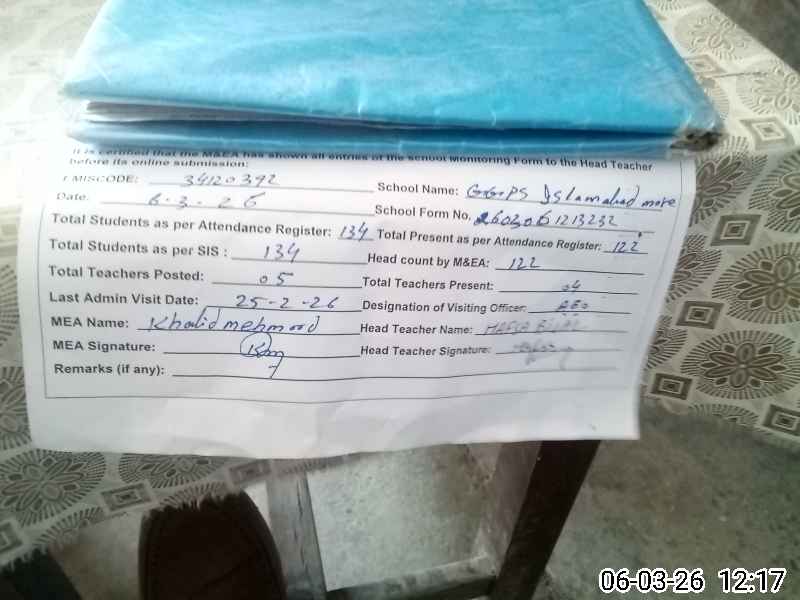 It is certified that the M&EA has shown all entries of the school Monitoring Form to the Head Teacher
before its online submission:
EMISCODE: 34120392 School Name: GGPS Islamabad more
Date: 6-3-26 School Form No. 2603061213232
Total Students as per Attendance Register: 134 Total Present as per Attendance Register: 122
Total Students as per SIS : 134 Head count by M&EA: 122
Total Teachers Posted: 05 Total Teachers Present: 04
Last Admin Visit Date: 25-2-26 Designation of Visiting Officer: AEO
MEA Name: Khalid mehmood Head Teacher Name:
MEA Signature: Head Teacher Signature:
Remarks (if any):
06-03-26 12:17